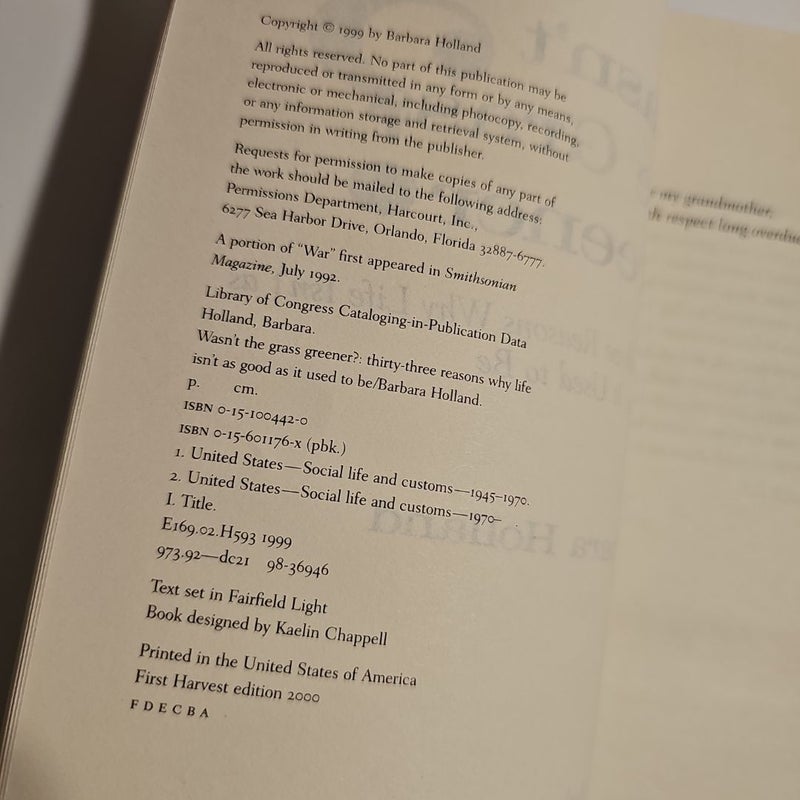 Copyright © 1999 by Barbara Holland
All rights reserved. No part of this publication may be
reproduced or transmitted in any form or by any means,
electronic or mechanical, including photocopy, recording,
or any information storage and retrieval system, without
permission in writing from the publisher.
Requests for permission to make copies of any part of
the work should be mailed to the following address:
Permissions Department, Harcourt, Inc.,
6277 Sea Harbor Drive, Orlando, Florida 32887-6777.
A portion of "War" first appeared in Smithsonian
Magazine, July 1992.
Library of Congress Cataloging-in-Publication Data
Holland, Barbara.
Wasn't the grass greener?: thirty-three reasons why life
isn't as good as it used to be/Barbara Holland.
p. cm.
ISBN 0-15-100442-0
ISBN 0-15-601176-x (pbk.)
1. United States—Social life and customs—1945–1970.
2. United States—Social life and customs—1970–
I. Title.
E169.02.H593 1999
973.92—dc21 98-36946
Text set in Fairfield Light
Book designed by Kaelin Chappell
Printed in the United States of America
First Harvest edition 2000
F D E C B A
my grandmother,
respect long overdue